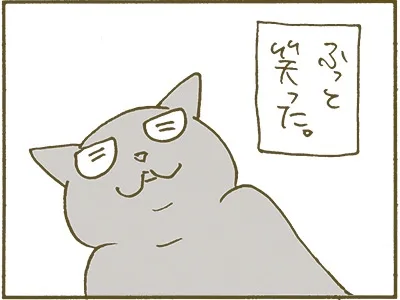 ふっと
笑った。